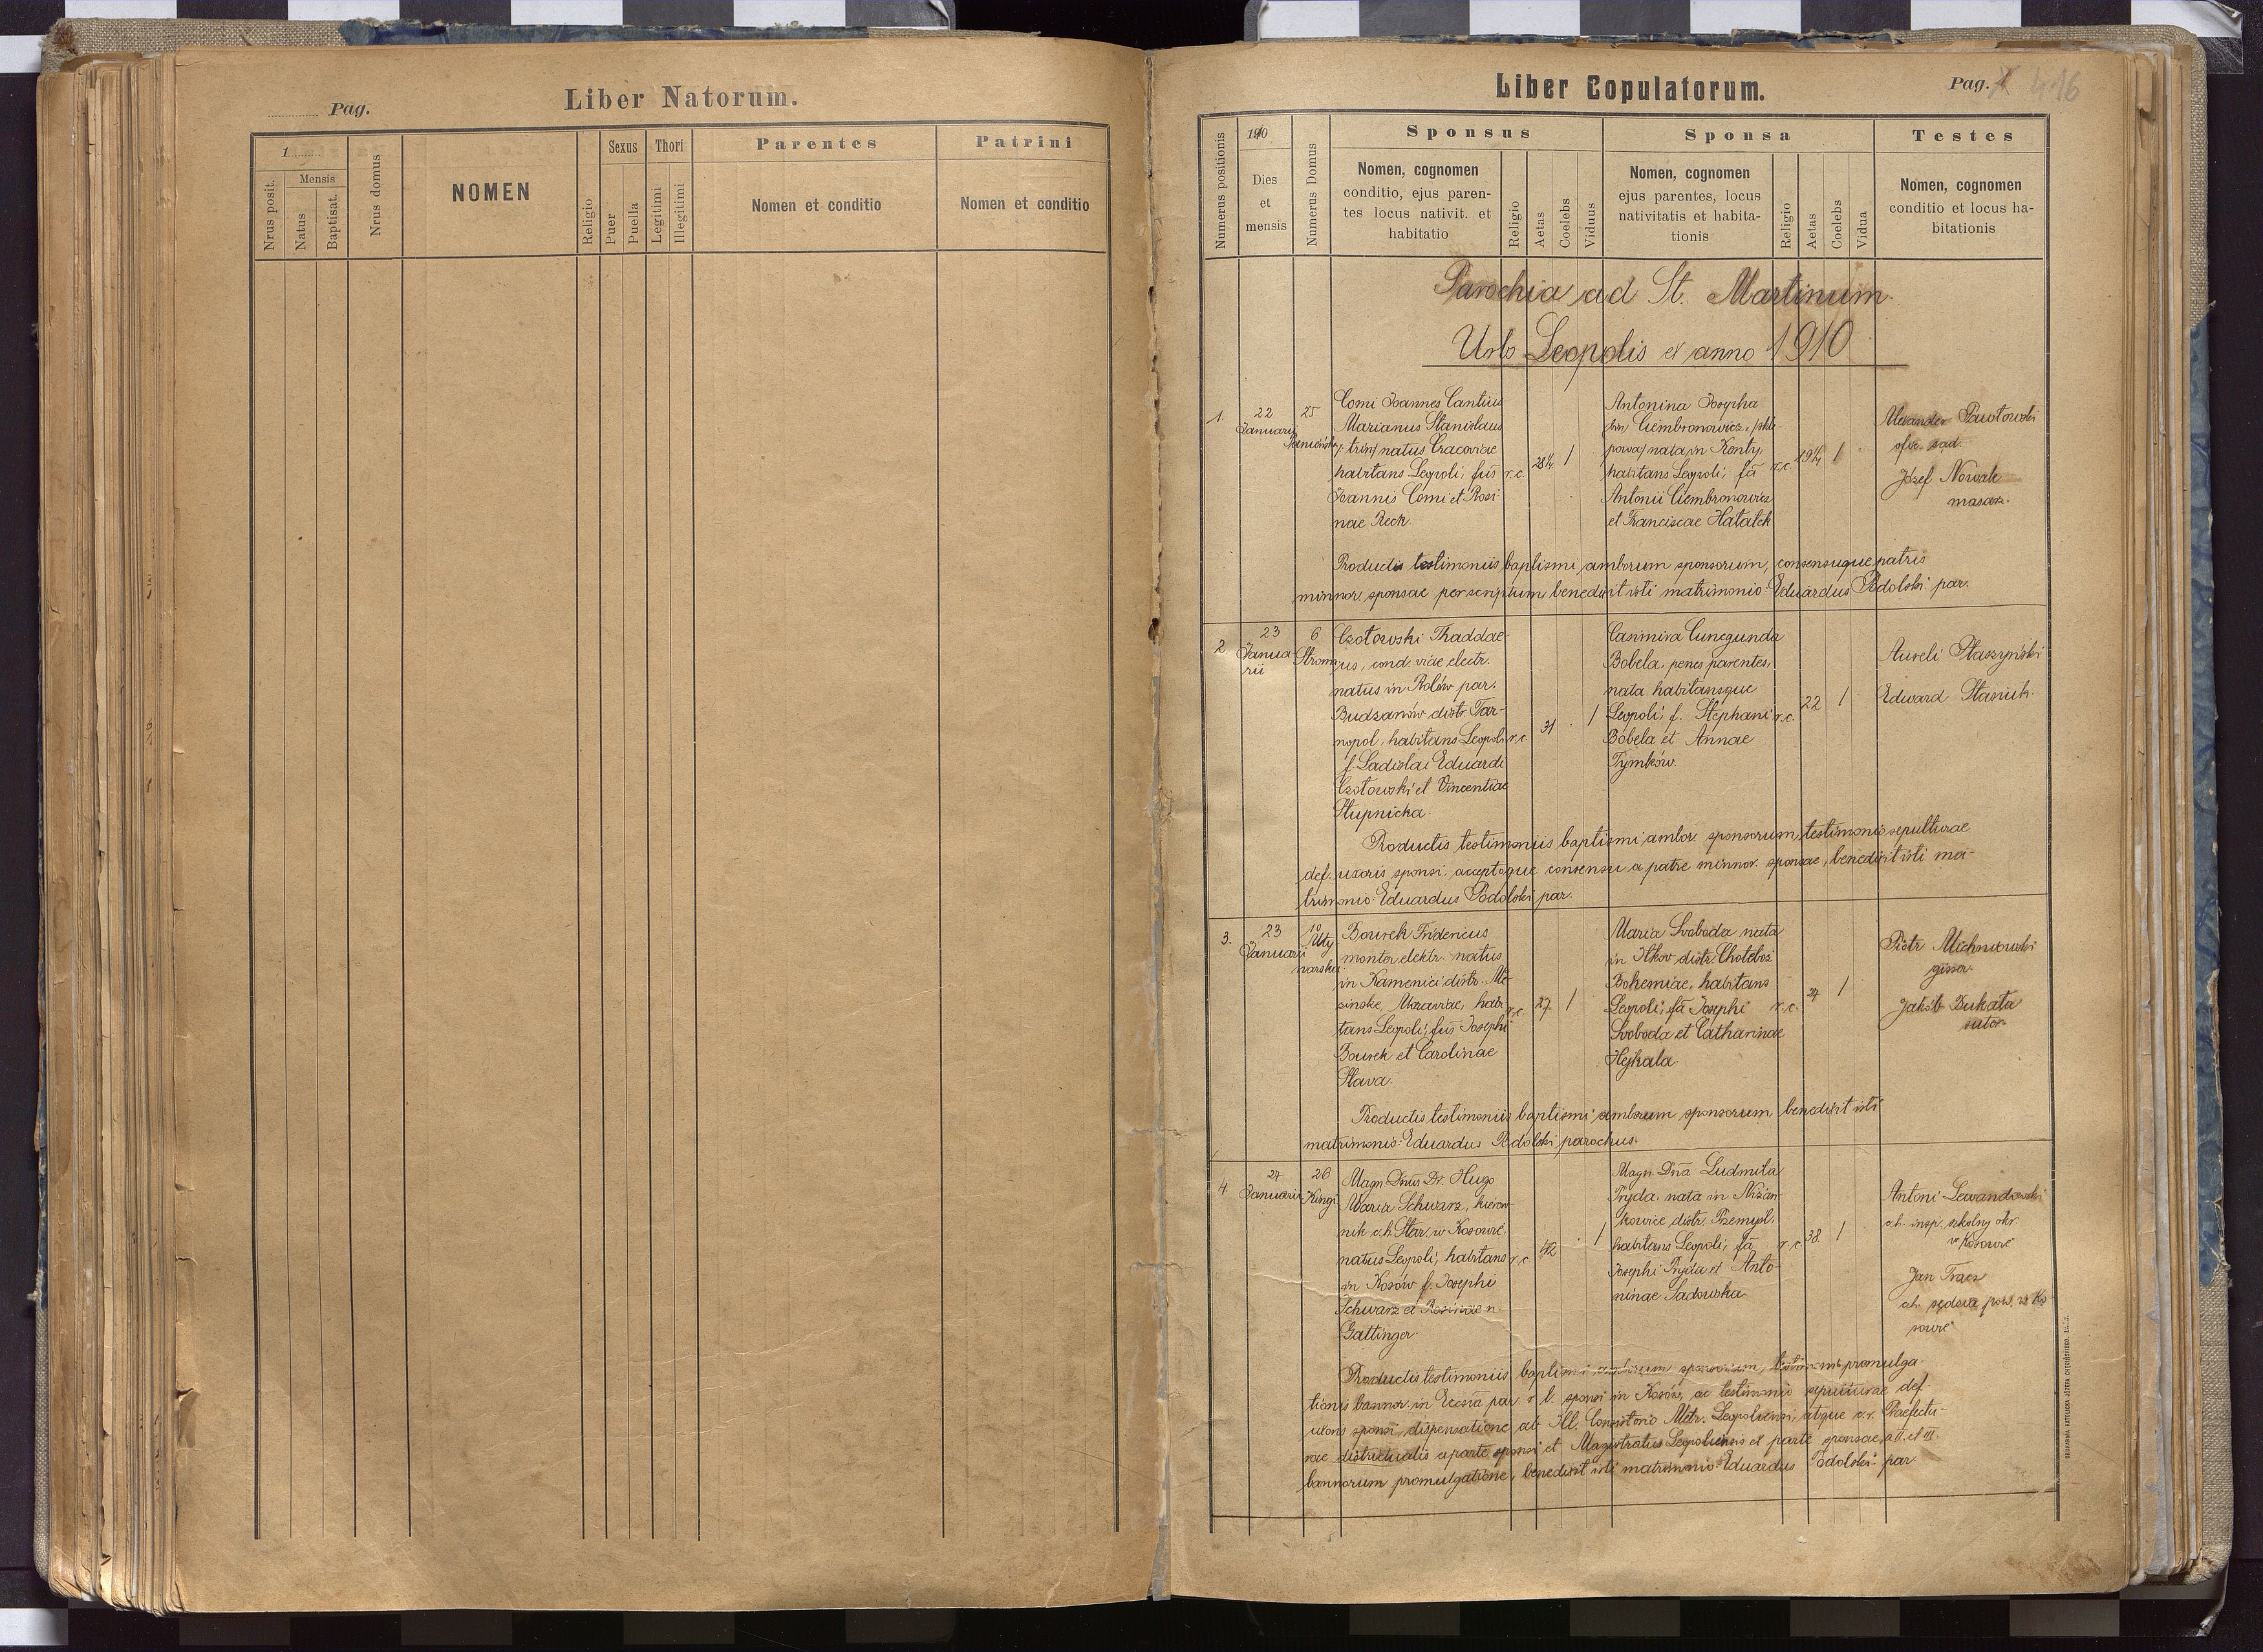 Pag.
Liber Natorum.
1
Nrus posit.
Mensis
Natus
Baptisat.
Nrus domus
NOMEN
Religio
Sexus
Puer
Puella
Thori
Legitimi
Illegitimi
Parentes
Nomen et conditio
Patrini
Nomen et conditio
Liber Copulatorum.
Pag. 416
Numerus positionis
1910
Dies
et
mensis
Numerus Domus
Sponsus
Nomen, cognomen
conditio, ejus paren-
tes locus nativit. et
habitatio
Religio
Aetas
Coelebs
Viduus
Sponsa
Nomen, cognomen
ejus parentes, locus
nativitatis et habita-
tionis
Religio
Aetas
Coelebs
Vidua
Testes
Nomen, cognomen
conditio et locus ha-
bitationis
Parochia ad St. Martinum
Urbs Leopolis et anno 1910
1.
22
Januarii
25
Comi Joannes Cantius
Marianus Stanislaus
natus Cracoviae
habitans Leopoli, fius
Joannis Comi et Rosi
nae Reck
r.c.
28¼
1
Antonina Josepha
Ciembronowicz
nata in Kenty,
habitans Leopoli, fa
Antonii Ciembronowicz
et Franciscae Hatatek
r.c.
19¼
1
Alexander Pawłowski
ofic. sąd.
Józef Nowak
masarz.
Productis testimoniis baptismi amborum sponsorum, consensuque patris
minnor. sponsae per scriptum benedixit isti matrimonio Eduardus Podolski par.
2.
23
Janua
rii
6
Strom
Czotowski Thaddae-
us, cond. viae electr.
natus in Rolów par.
Budzanów distr. Tar-
nopol, habitans Leopoli
f. Ladislai Eduardi
Czotowski et Vincentiae
Stupnicka.
r.c.
31
1
Casimira Cunegunda
Bobela, penes parentes,
nata habitansque
Leopoli, f. Stephani
Bobela et Annae
Tymków.
r.c.
22
1
Aureli Staszyński
Edward Stasiuk.
Productis testimoniis baptismi ambor. sponsorum, testimonio sepulturae
def. uxoris sponsi, acceptoque consensu a patre minnor. sponsae, benedixit isti ma-
trimonio: Eduardus Podolski par.
3.
23
Januarii
10
Bourek Fridericus
monter elektr. natus
in Kamenici distr. Me-
zinske, Moraviae, habi
tans Leopoli, fius Josephi
Bourek et Carolinae
Slava.
r.c.
27.
1
Maria Svoboda nata
in Itkov distr. Choteboż
Bohemiae, habitans
Leopoli, fa Josephi
Svoboda et Catharinae
Hejkala.
r.c.
27
1
Piotr Michnowski
giser.
Jakób Dukata
sutor.
Productis testimoniis baptismi amborum sponsorum, benedixit isti
matrimonio: Eduardus Podolski parochus.
4.
27
Januarii
26
Kingi
Magn. Dnus Dr. Hugo
Maria Schwarz, kierow
nik c.k. Star. w Kosowie
natus Leopoli, habitans
in Kosów f. Josephi
Schwarz et Rosinae n
Gattinger.
r.c.
42
1
Magn. Dna Ludmila
Pryda, nata in Niżan
kowice distr. Przemysl,
habitans Leopoli, fa
Josephi Pryda et Anto-
ninae Sadowska
r.c.
38.
1
Antoni Lewandowski
c.k. insp. szkolny okr.
w Kosowie
Jan Tracz
c.k. sędzia pow. w Ko-
sowie
Productis testimoniis baptismi amborum sponsorum, testimonio promulga-
tionis bannor. in Eccsia par. r. l. sponsi in Kosów, ac testimonio sepulturae def.
uxoris sponsi, dispensatione ab Ill. Consistorio Metr. Leopoliensi, atque c.r. Praefectu-
rae districtualis a parte sponsi et Magistratus Leopoliensis et parte sponsae, a II. et III.
bannorum promulgatione, benedixit isti matrimonio Eduardus Podolski par.